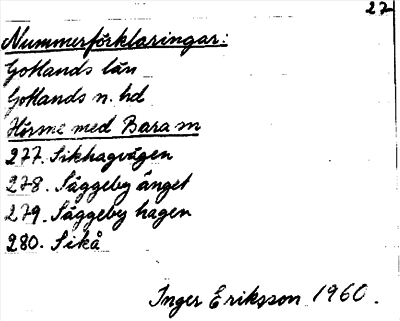 27
Nummerförklaringar:
Gotlands län
Gotlands n. hd
Hörsne med Bara sn
277. Sikhagvägen
278. Säggeby änget
279. Säggeby hagen
280. Sikå
Inger Eriksson 1960.